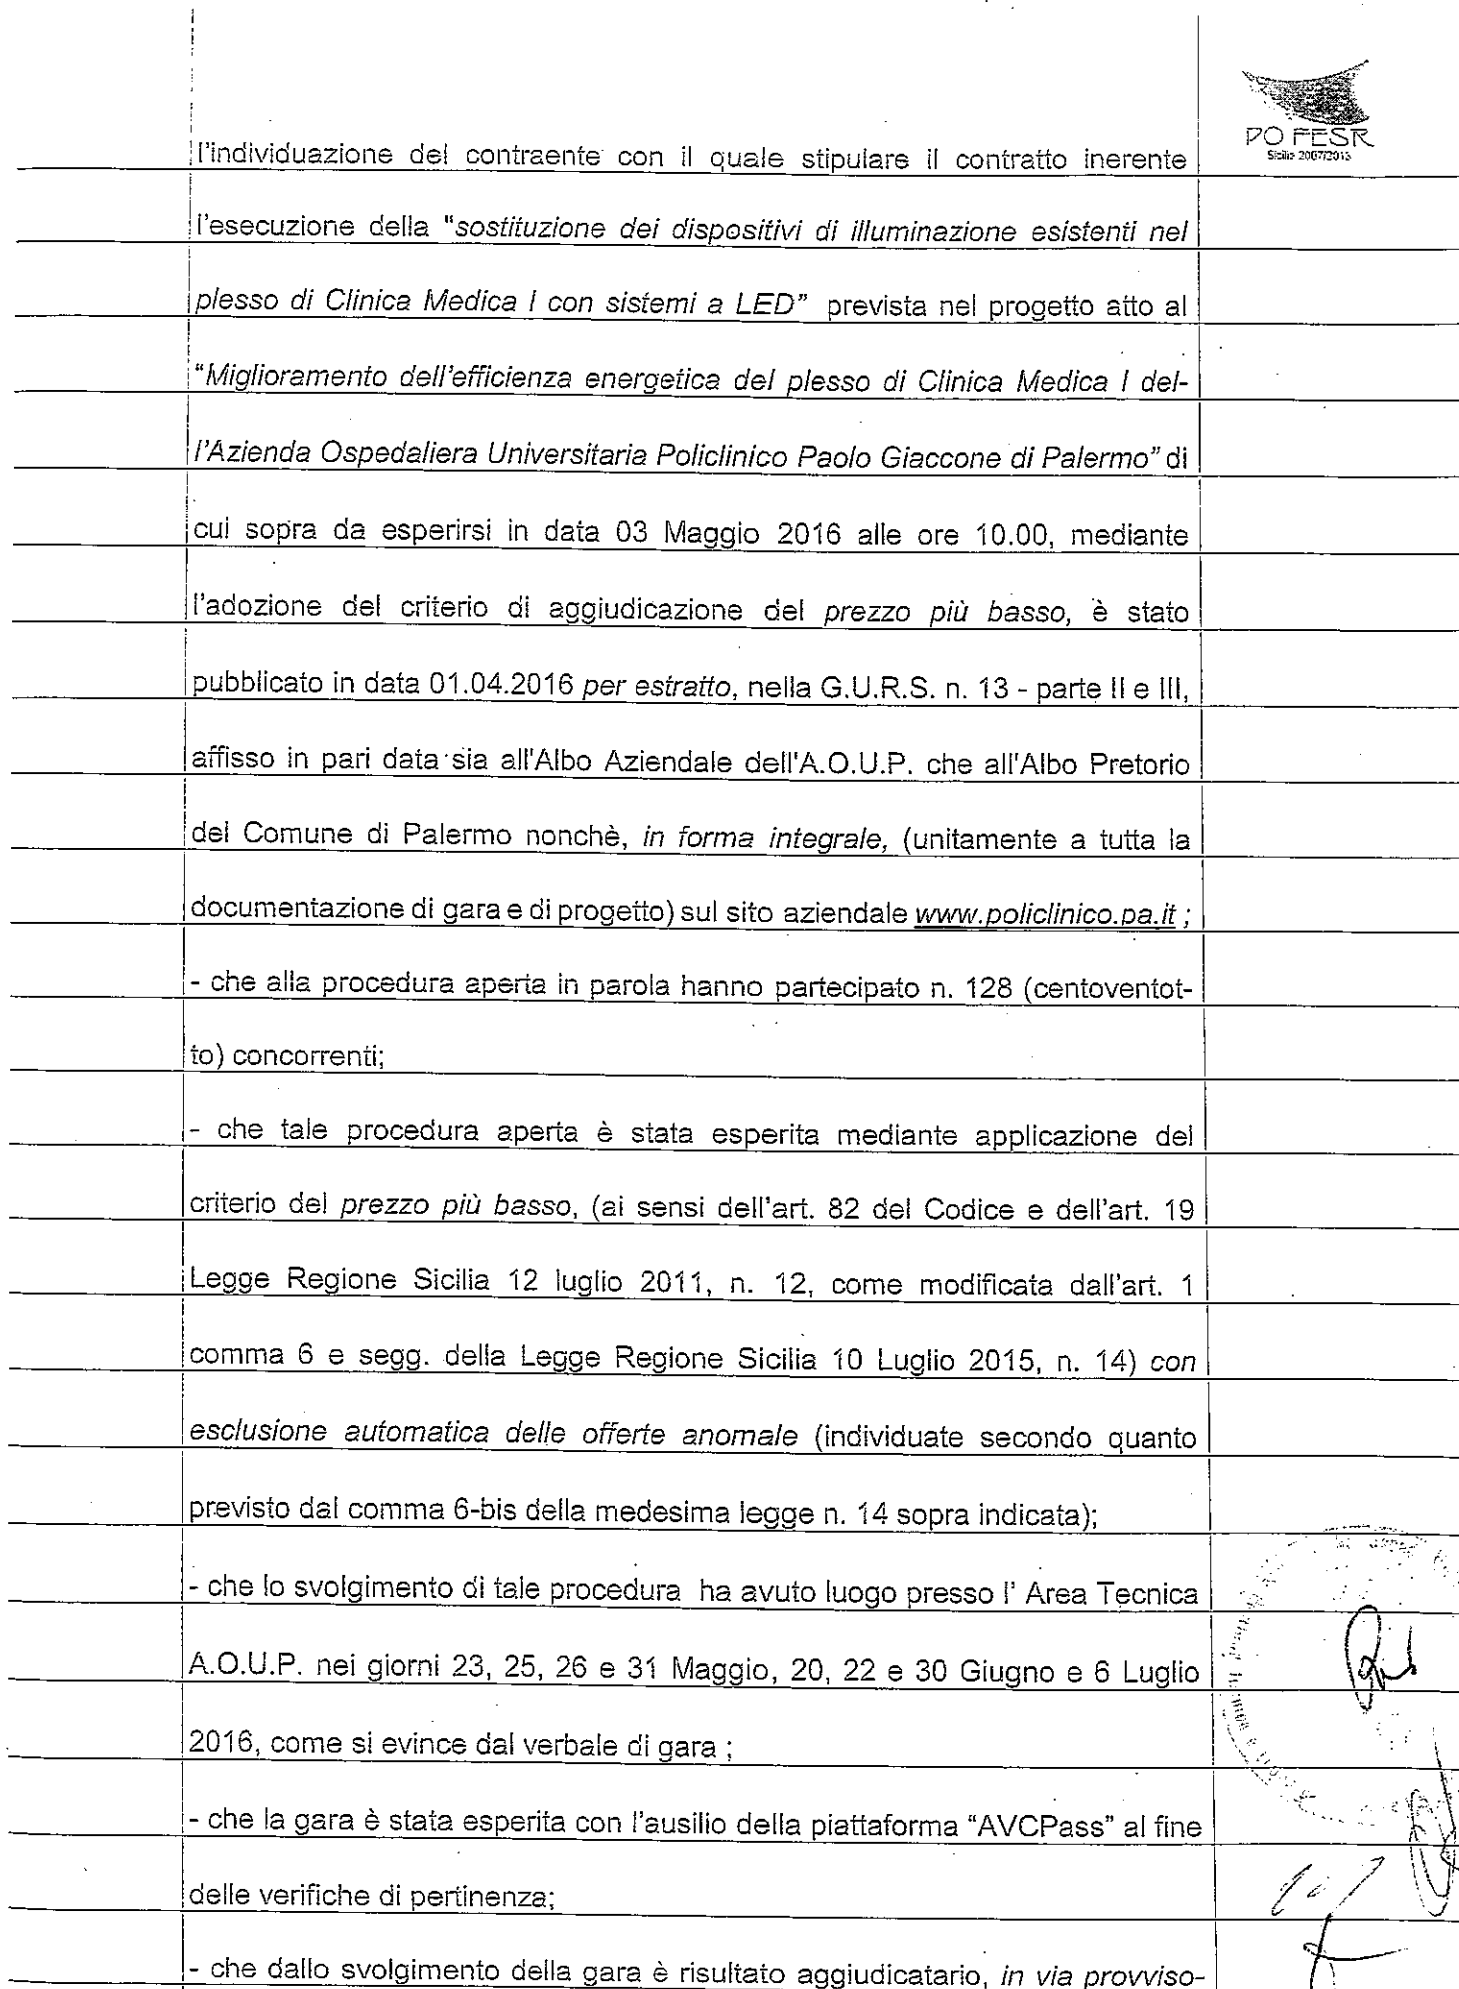 PO FESR
Sicilia 2007/2013
l'individuazione del contraente con il quale stipulare il contratto inerente
l'esecuzione della "sostituzione dei dispositivi di illuminazione esistenti nel
plesso di Clinica Medica I con sistemi a LED" prevista nel progetto atto al
"Miglioramento dell'efficienza energetica del plesso di Clinica Medica I del-
l'Azienda Ospedaliera Universitaria Policlinico Paolo Giaccone di Palermo" di
cui sopra da esperirsi in data 03 Maggio 2016 alle ore 10.00, mediante
l'adozione del criterio di aggiudicazione del prezzo più basso, è stato
pubblicato in data 01.04.2016 per estratto, nella G.U.R.S. n. 13 - parte II e III,
affisso in pari data sia all'Albo Aziendale dell'A.O.U.P. che all'Albo Pretorio
del Comune di Palermo nonchè, in forma integrale, (unitamente a tutta la
documentazione di gara e di progetto) sul sito aziendale www.policlinico.pa.it ;
- che alla procedura aperta in parola hanno partecipato n. 128 (centoventot-
to) concorrenti;
- che tale procedura aperta è stata esperita mediante applicazione del
criterio del prezzo più basso, (ai sensi dell'art. 82 del Codice e dell'art. 19
Legge Regione Sicilia 12 luglio 2011, n. 12, come modificata dall'art. 1
comma 6 e segg. della Legge Regione Sicilia 10 Luglio 2015, n. 14) con
esclusione automatica delle offerte anomale (individuate secondo quanto
previsto dal comma 6-bis della medesima legge n. 14 sopra indicata);
- che lo svolgimento di tale procedura ha avuto luogo presso l' Area Tecnica
A.O.U.P. nei giorni 23, 25, 26 e 31 Maggio, 20, 22 e 30 Giugno e 6 Luglio
2016, come si evince dal verbale di gara ;
- che la gara è stata esperita con l'ausilio della piattaforma "AVCPass" al fine
delle verifiche di pertinenza;
- che dallo svolgimento della gara è risultato aggiudicatario, in via provviso-